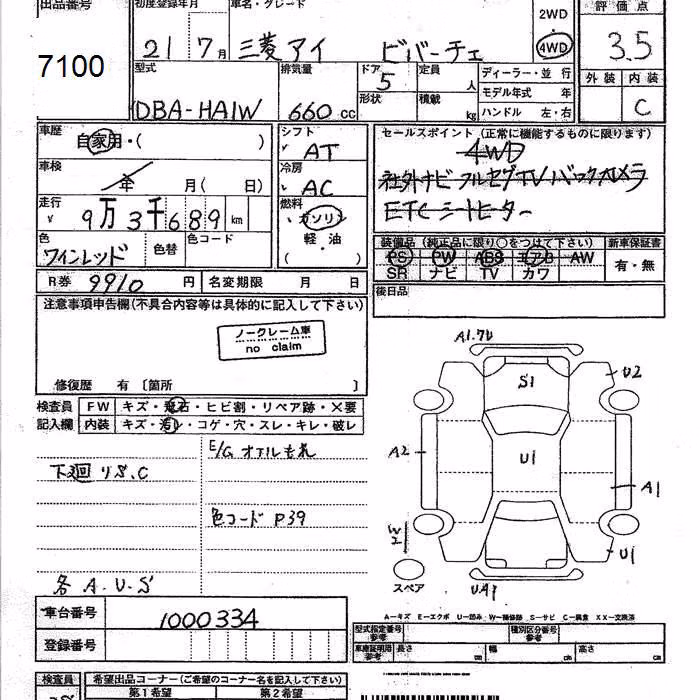 出品番号 初度登録年月 車名・グレード 2WD 評価点
7100 21 7月 三菱アイ ビバーチェ 4WD 3.5
型式 排気量 ドア 5 定員 人 ディーラー・並行 外装 内装
形状 積載 kg モデル年式 年
DBA-HA1W 660cc ハンドル 左・右 C
車歴 自家用・( ) シフト AT セールスポイント (正常に機能するものに限ります)
4WD
車検 年 月( 日) 冷房 AC 社外ナビ フルセグTV バックカメラ
走行 ¥ 9万3千689km 燃料 ガソリン ETC シートヒーター
軽・油
( )
色 ワインレッド 色替 色コード 装備品 (純正品に限り○をつけて下さい) 新車保証書
PS PW ABS エアB AW 有・無
SR ナビ TV カワ
R券 9910円 名変期限 月 日 後日品
注意事項申告欄(不具合内容等は具体的に記入して下さい)
ノークレーム車
no claim
修復歴 有 〔箇所 〕
検査員 FW キズ・飛石・ヒビ割・リペア跡・X要
記入欄 内装 キズ・汚レ・コゲ・穴・スレ・キレ・破レ
E/G オイルもれ
下廻りS.C
色コード P39
各A.U.S
A1.7U
S1
U2
A2
U1
A1
W2
U1
スペア
UA1
A―キズ E―エクボ U―凹み W―補修跡 S―サビ C―腐食 XX―交換済
車台番号 1000334
型式指定番号 参考 種別区分番号 参考
登録番号 車庫証明用 参考 長さ cm 幅 cm 高さ cm
検査員 希望出品コーナー(ご希望のコーナー名を記入して下さい)
第1希望 第2希望